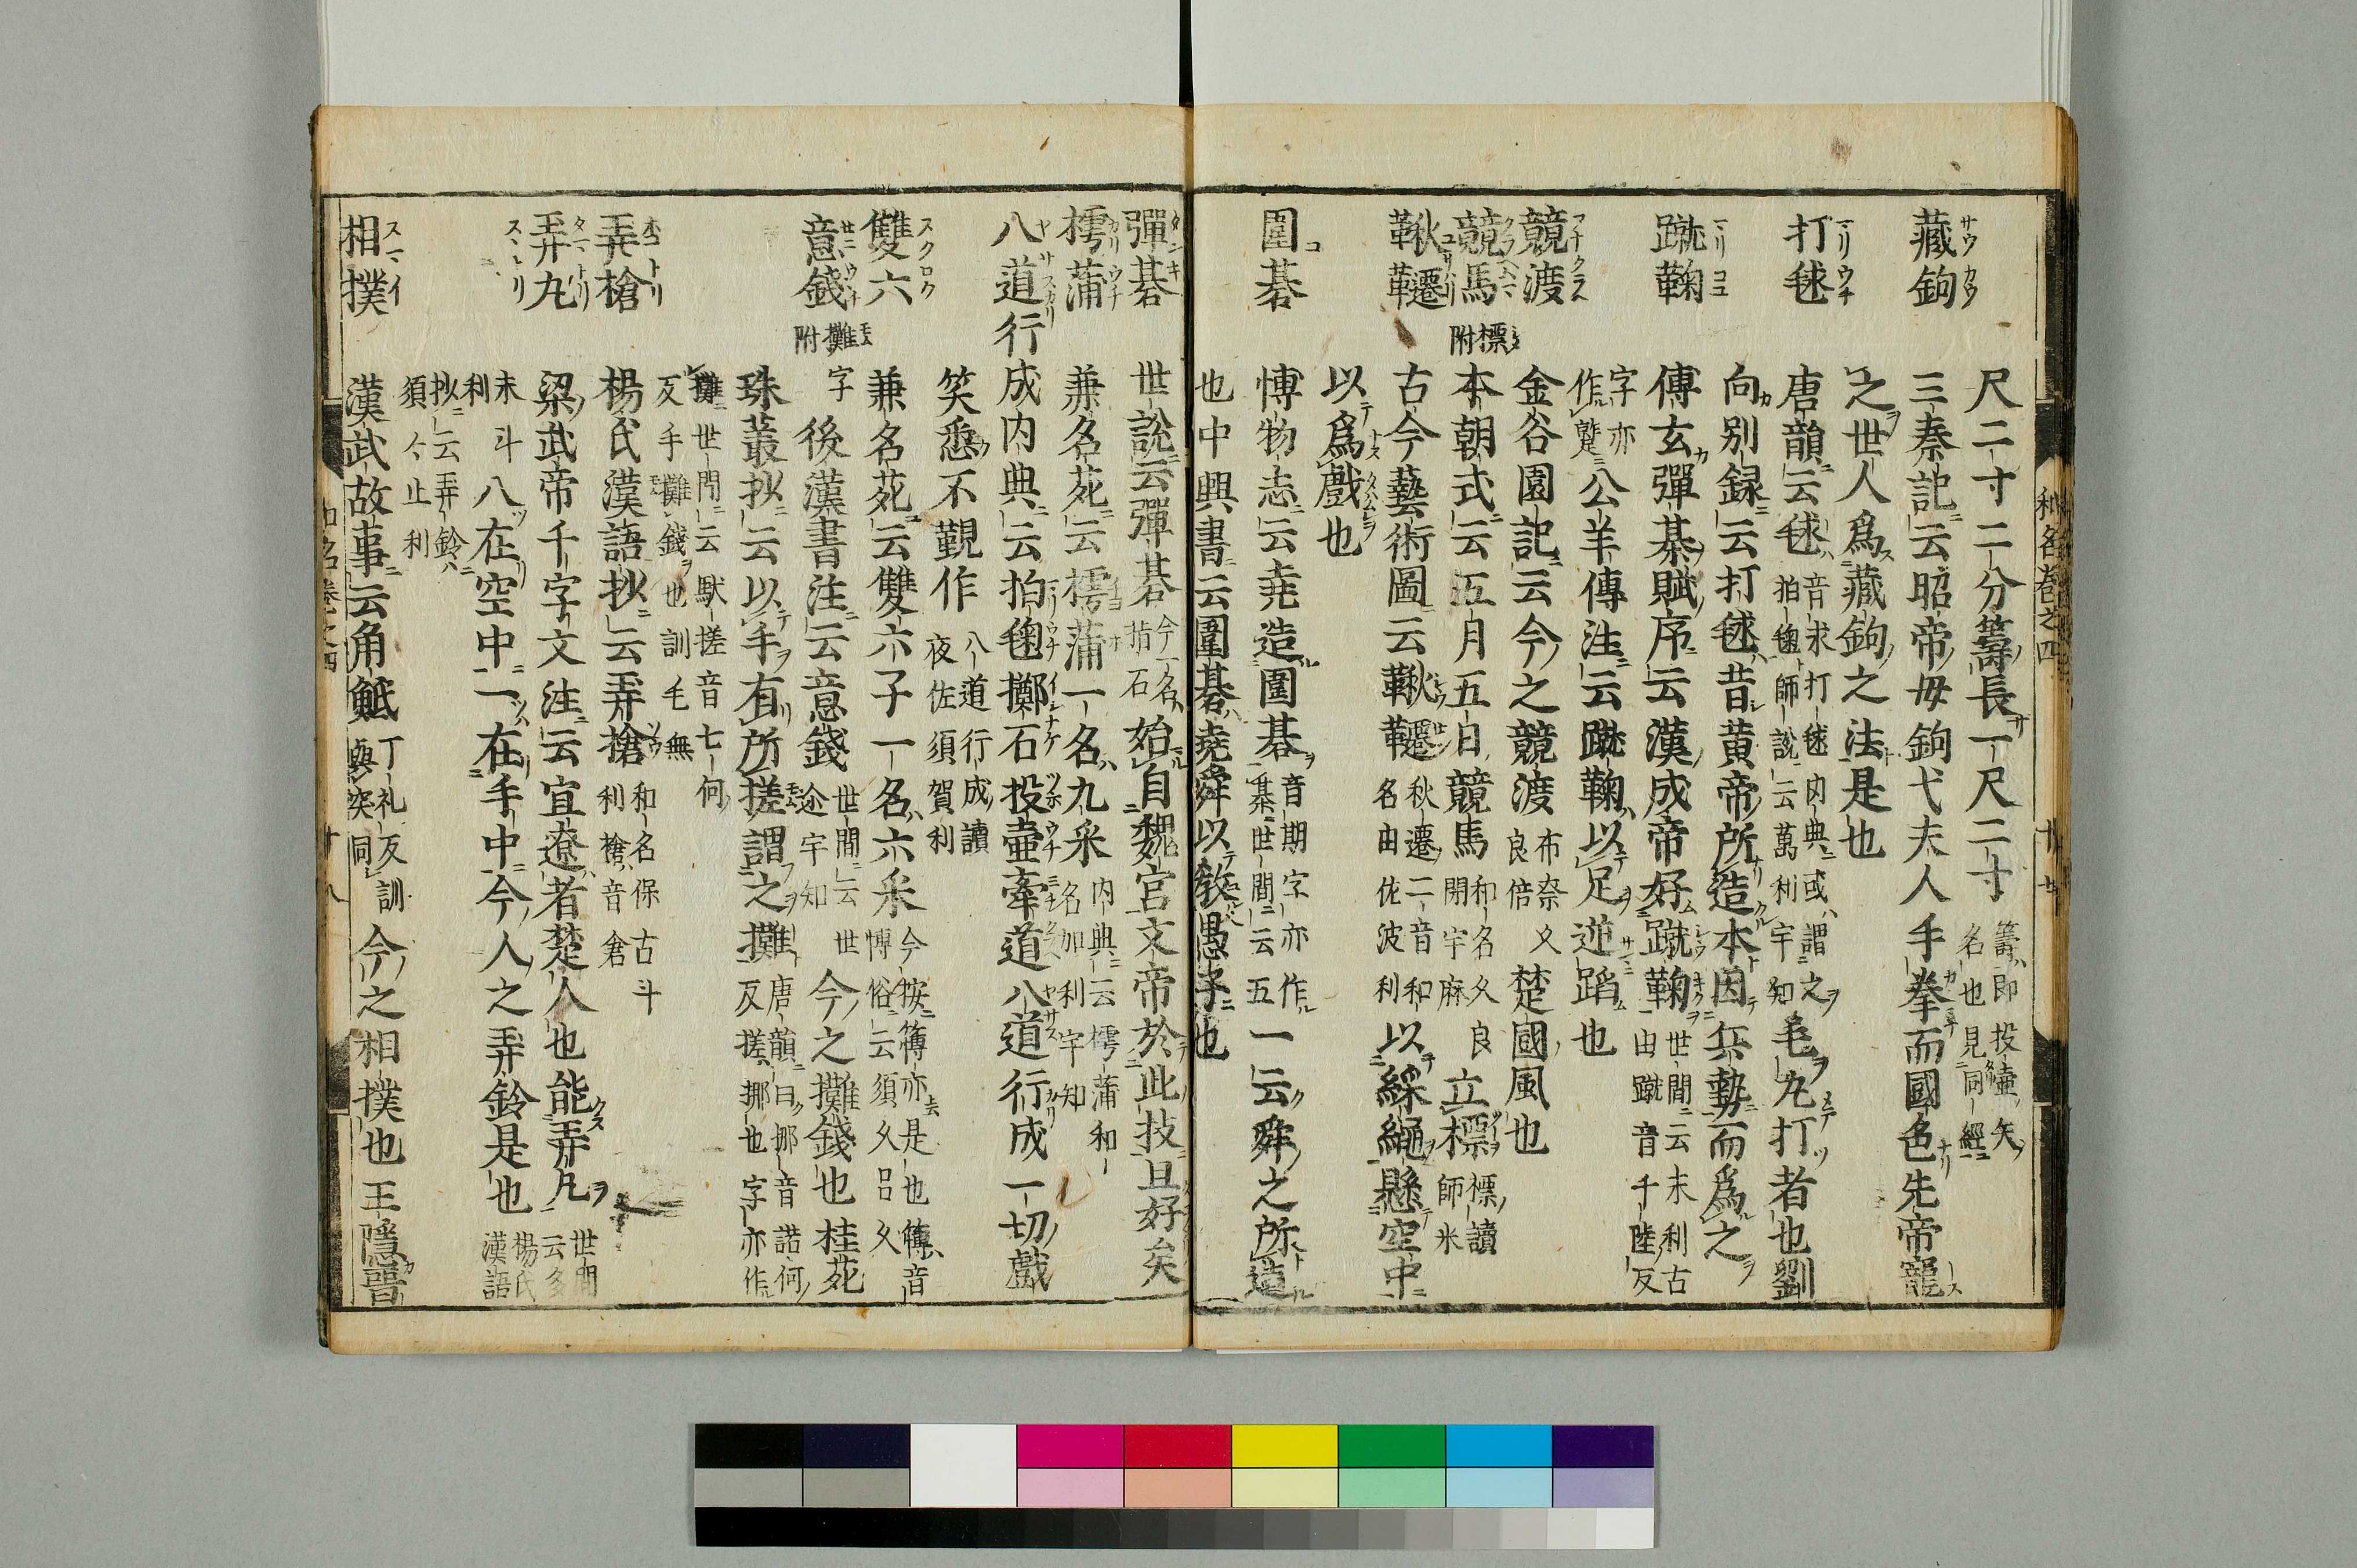 尺二寸二分籌長一尺二寸 籌即投壺矢名也見同經
藏鉤 三秦記云昭帝母鉤弋夫人手拳而國色先帝寵
之世人爲藏鉤之法是也
打毬 唐韻云毬 音求打毬内典或謂之拍毱師說云萬利宇知 毛丸打者也劉
向別録云打毬昔黄帝所造本因兵勢而爲之
蹴鞠 傳玄彈棊賦序云漢成帝好蹴鞠 世間云末利古由蹴音千陸反
字亦作蹵 公羊傳注云蹴鞠以足逆蹈也
競渡 金谷園記云今之競渡 布奈久良倍 楚國風也
競馬 標附 本朝式云五月五日競馬 和名久良閇宇麻 立標 標讀師米
鞦韆 古今藝術圖云鞦韆 秋遷二音和名由佐波利 以綵繩懸空中
以爲戲也
圍碁 博物志云堯造圍碁 音期字亦作棊世間云五 一云舜之所造
也中興書云圍碁堯舜以教愚子也
彈碁 世說云彈碁 今一名指石 始自魏宮文帝於此技且好矣
樗蒲 兼名苑云樗蒲一名九采 内典云樗蒲和名加利宇知
八道行成 内典云拍毱擲石投壺牽道八道行成一切戲
笑悉不觀作 八道行成讀夜佐須賀利
雙六 兼名苑云雙六子一名六采 今按簙亦是也簙音博俗云須久呂久
意錢 攤附字 後漢書注云意錢 世間云世迩宇知 今之攤錢也桂苑
珠叢抄云以手有所搓謂之攤 唐韻曰挪音諾何反搓挪也字亦作
攤世間云馱搓音七何反手攤錢也訓毛無
弄槍 楊氏漢語抄云弄槍 和名保古斗利槍音倉
弄丸 梁武帝千字文注云宜遼者楚人也能弄丸 世間云多
末斗利 八在空中一在手中今人之弄鈴是也 楊氏漢語
抄云弄鈴須々止利
相撲 漢武故事云角觝 丁礼反訓與突同 今之相撲也王隱晉
和名卷之四